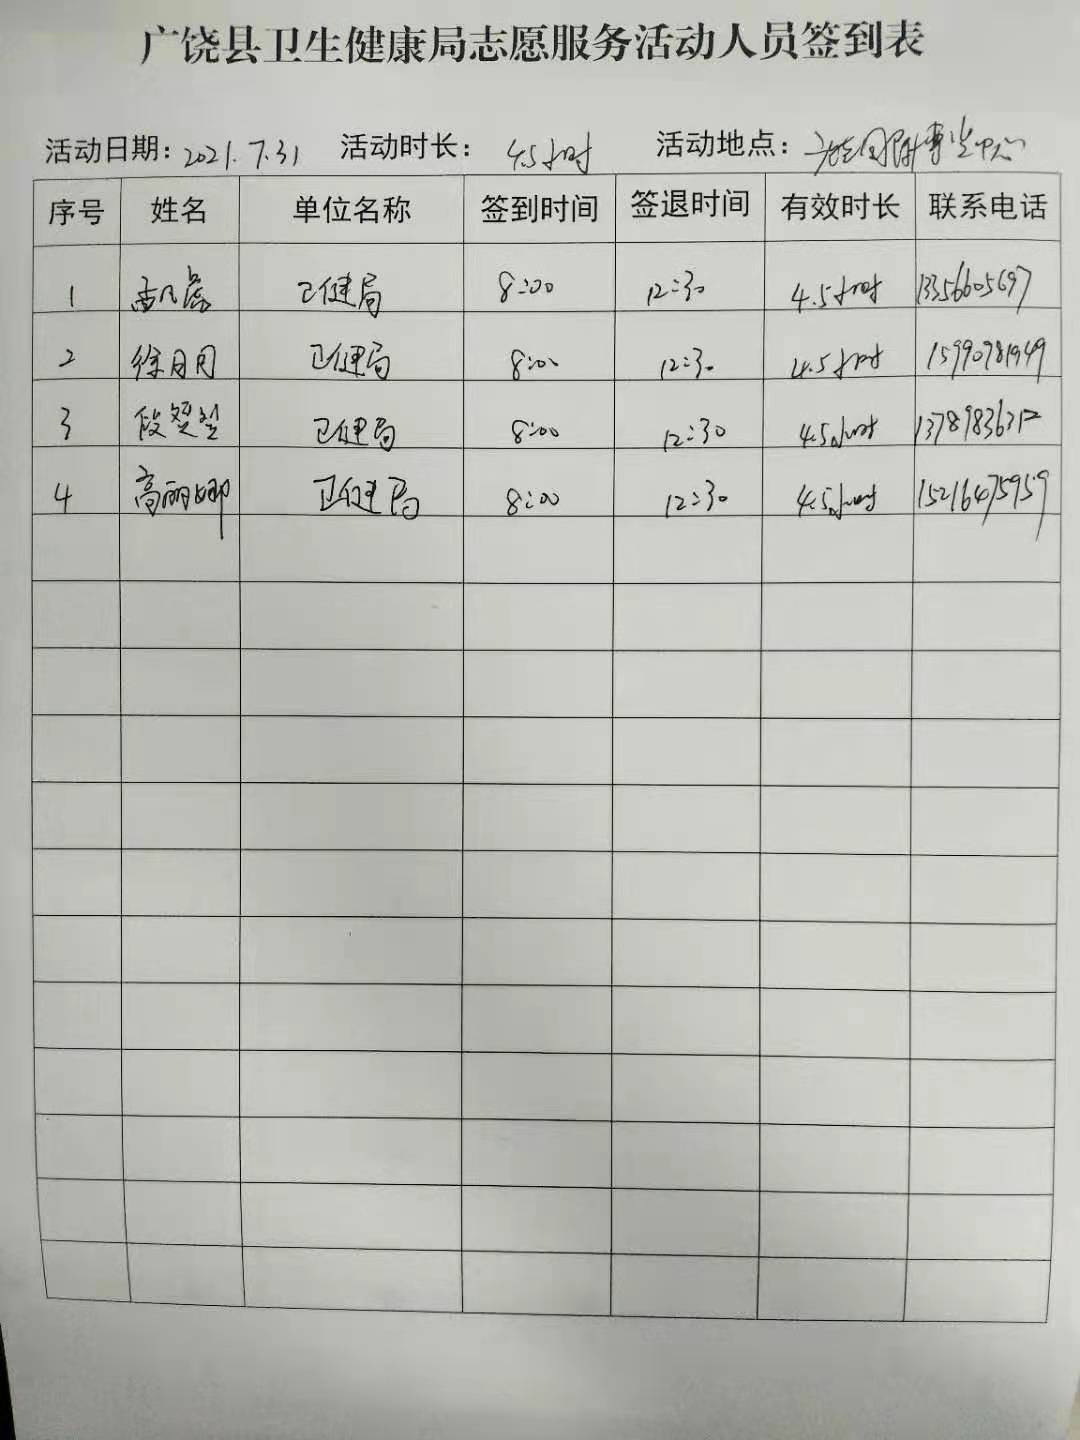 广饶县卫生健康局志愿服务活动人员签到表
活动日期：2021.7.31 活动时长：4.5小时 活动地点：
序号 姓名 单位名称 签到时间 签退时间 有效时长 联系电话
1 孟凡 卫健局 8:00 12:30 4.5小时 13356605697
2 徐月月 卫健局 8:00 12:30 4.5小时
3 段 卫健局 8:00 12:30 4.5小时
4 高丽娜 卫健局 8:00 12:30 4.5小时 15216475959